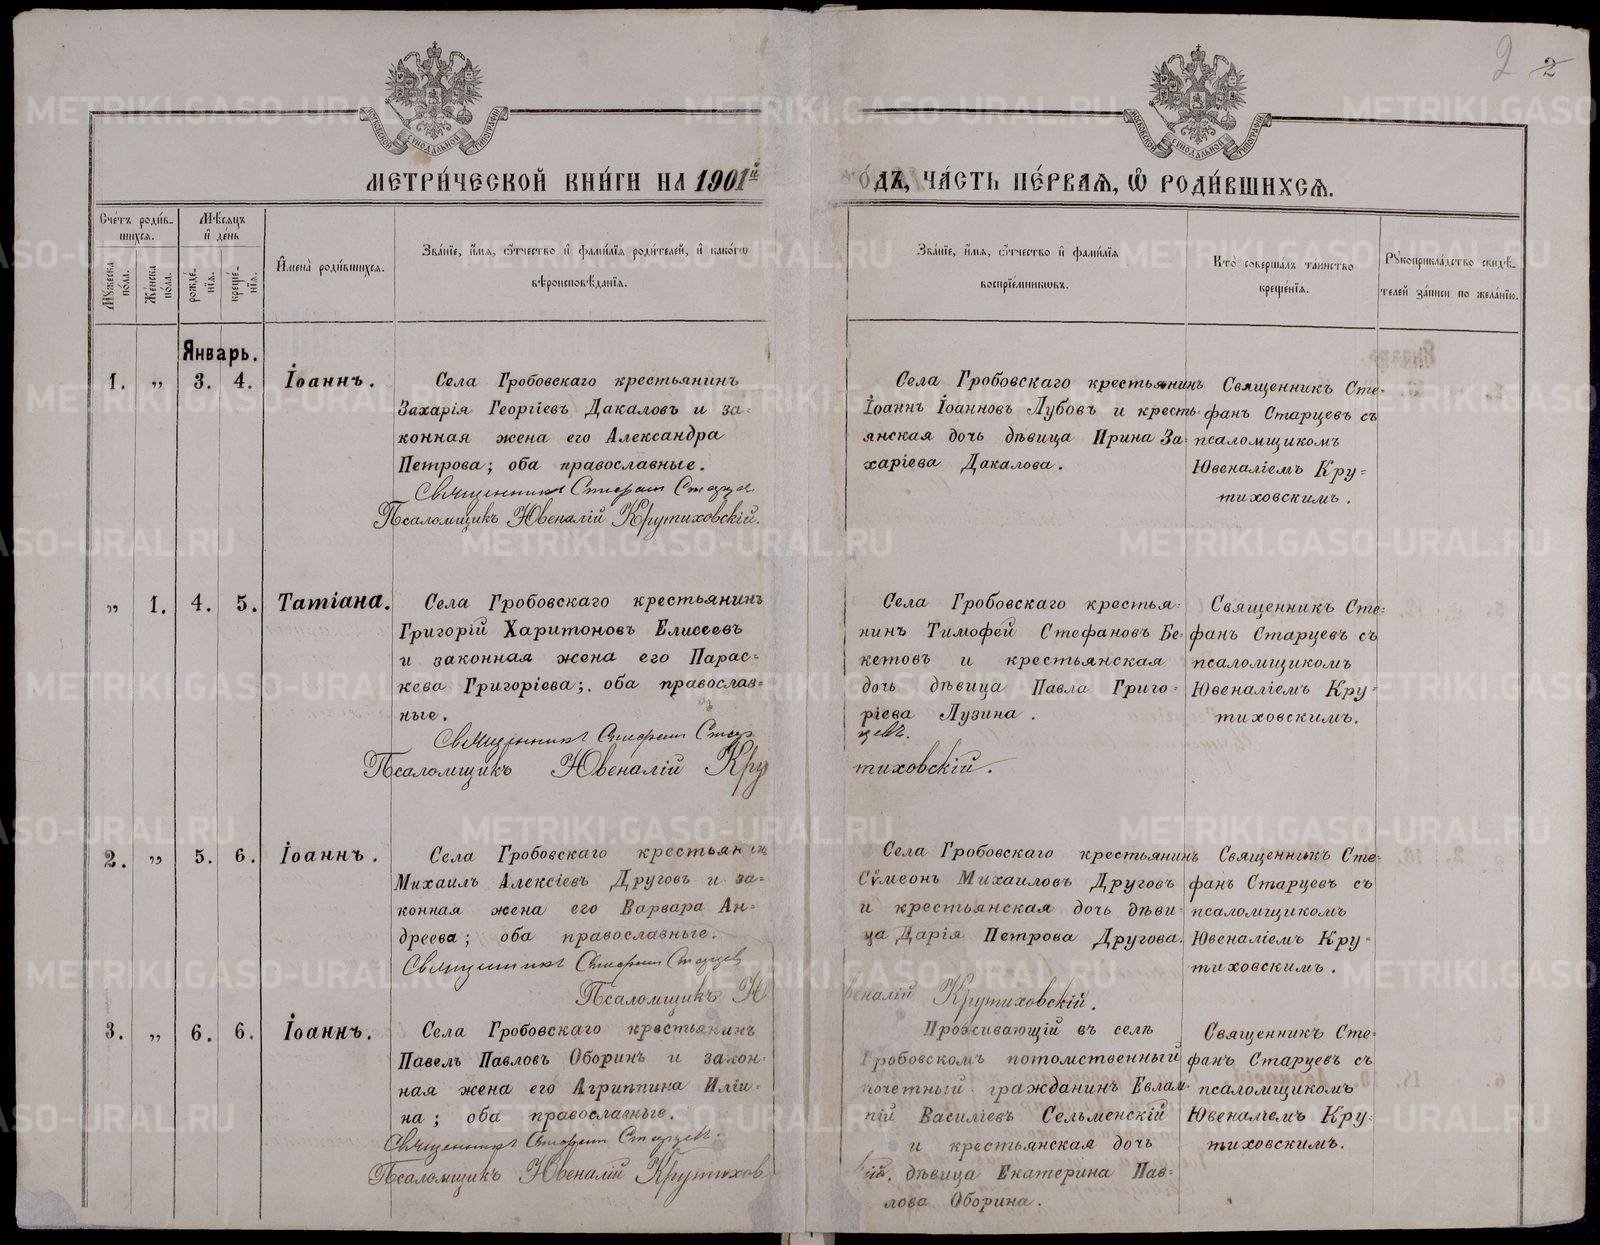 2 2
МОСКОВСКОЙ СѴНОДАЛЬНОЙ ТИПОГРАФІИ
МОСКОВСКОЙ СѴНОДАЛЬНОЙ ТИПОГРАФІИ
МЕТРИ́ЧЕСКОЙ КНИ́ГИ НА 1901й
го́дъ, ЧА́СТЬ ПЕ́РВАѦ, Ѽ РОДИ́ВШИХСѦ.
Сче́тъ роди́в-
шихсѧ.
Мѣ́сѧцъ
и҆ де́нь
Мꙋ́жеска по́ла.
Же́нска по́ла.
рожде́нїѧ.
креще́нїѧ.
И҆мена̀ роди́вшихсѧ.
Зва́нїе, и҆́мѧ, ѻ҆́тчество и҆ фами́лїѧ роди́телей, и҆ како́гѡ
вѣроисповѣ́данїѧ.
Зва́нїе, и҆́мѧ, ѻ҆́тчество и҆ фами́лїѧ
воспрїе́мникѡвъ.
Кто̀ соверша́лъ та́инство
креще́нїѧ.
Рꙋкоприкла́дство свидѣ́-
телей за́писи по жела́нїю.
Январь.
1. „ 3. 4. Іоаннъ.
Села Гробовскаго крестьянинъ
Захарія Георгіевъ Дакаловъ и за=
конная жена его Александра
Петрова; оба православные.
Священникъ Стефанъ Старцев
Псаломщикъ Ювеналій Крутиховскій.
Села Гробовскаго крестьянинъ
Іоаннъ Іоанновъ Лубовъ и кресть-
янская дочь дѣвица Ирина За-
харіева Дакалова.
Священникъ Сте=
фанъ Старцевъ съ
псаломщикомъ
Ювеналіемъ Кру=
тиховскимъ.
„ 1. 4. 5. Татіана.
Села Гробовскаго крестьянинъ
Григорій Харитоновъ Елисеевъ
и законная жена его Парас=
кева Григоріева; оба православ=
ные.
Священникъ Стефанъ Стар
Псаломщикъ Ювеналій Кру
Села Гробовскаго крестья=
нинъ Тимофей Стефановъ Бе=
кетовъ и крестьянская
дочь дѣвица Павла Григо=
ріева Лузина.
цевъ.
тиховскій.
Священникъ Сте=
фанъ Старцевъ съ
псаломщикомъ
Ювеналіемъ Кру=
тиховскимъ.
2. „ 5. 6. Іоаннъ.
Села Гробовскаго крестьянинъ
Михаилъ Алексіевъ Друговъ и за=
конная жена его Варвара Ан=
дреева; оба православные.
Священникъ Стефанъ Старцев
Псаломщикъ Ю
Села Гробовскаго крестьянинъ
Сѵмеонъ Михаиловъ Друговъ
и крестьянская дочь дѣви-
ца Дарія Петрова Другова.
веналій Крутиховскій.
Священникъ Сте=
фанъ Старцевъ съ
псаломщикомъ
Ювеналіемъ Кру=
тиховскимъ.
3. „ 6. 6. Іоаннъ.
Села Гробовскаго крестьянинъ
Павелъ Павловъ Оборинъ и закон-
ная жена его Агриппина Иліи-
на; оба православные.
Священникъ Стефанъ Старцевъ.
Псаломщикъ Ювеналій Крутихов
Проживающій въ селѣ
Гробовскомъ потомственный
почетный гражданинъ Евлам-
пій Василіевъ Сельменскій
и крестьянская дочь
скій. дѣвица Екатерина Пав-
лова Оборина.
Священникъ Сте=
фанъ Старцевъ съ
псаломщикомъ
Ювеналіемъ Кру=
тиховскимъ.
METRIKI.GASO-URAL.RU